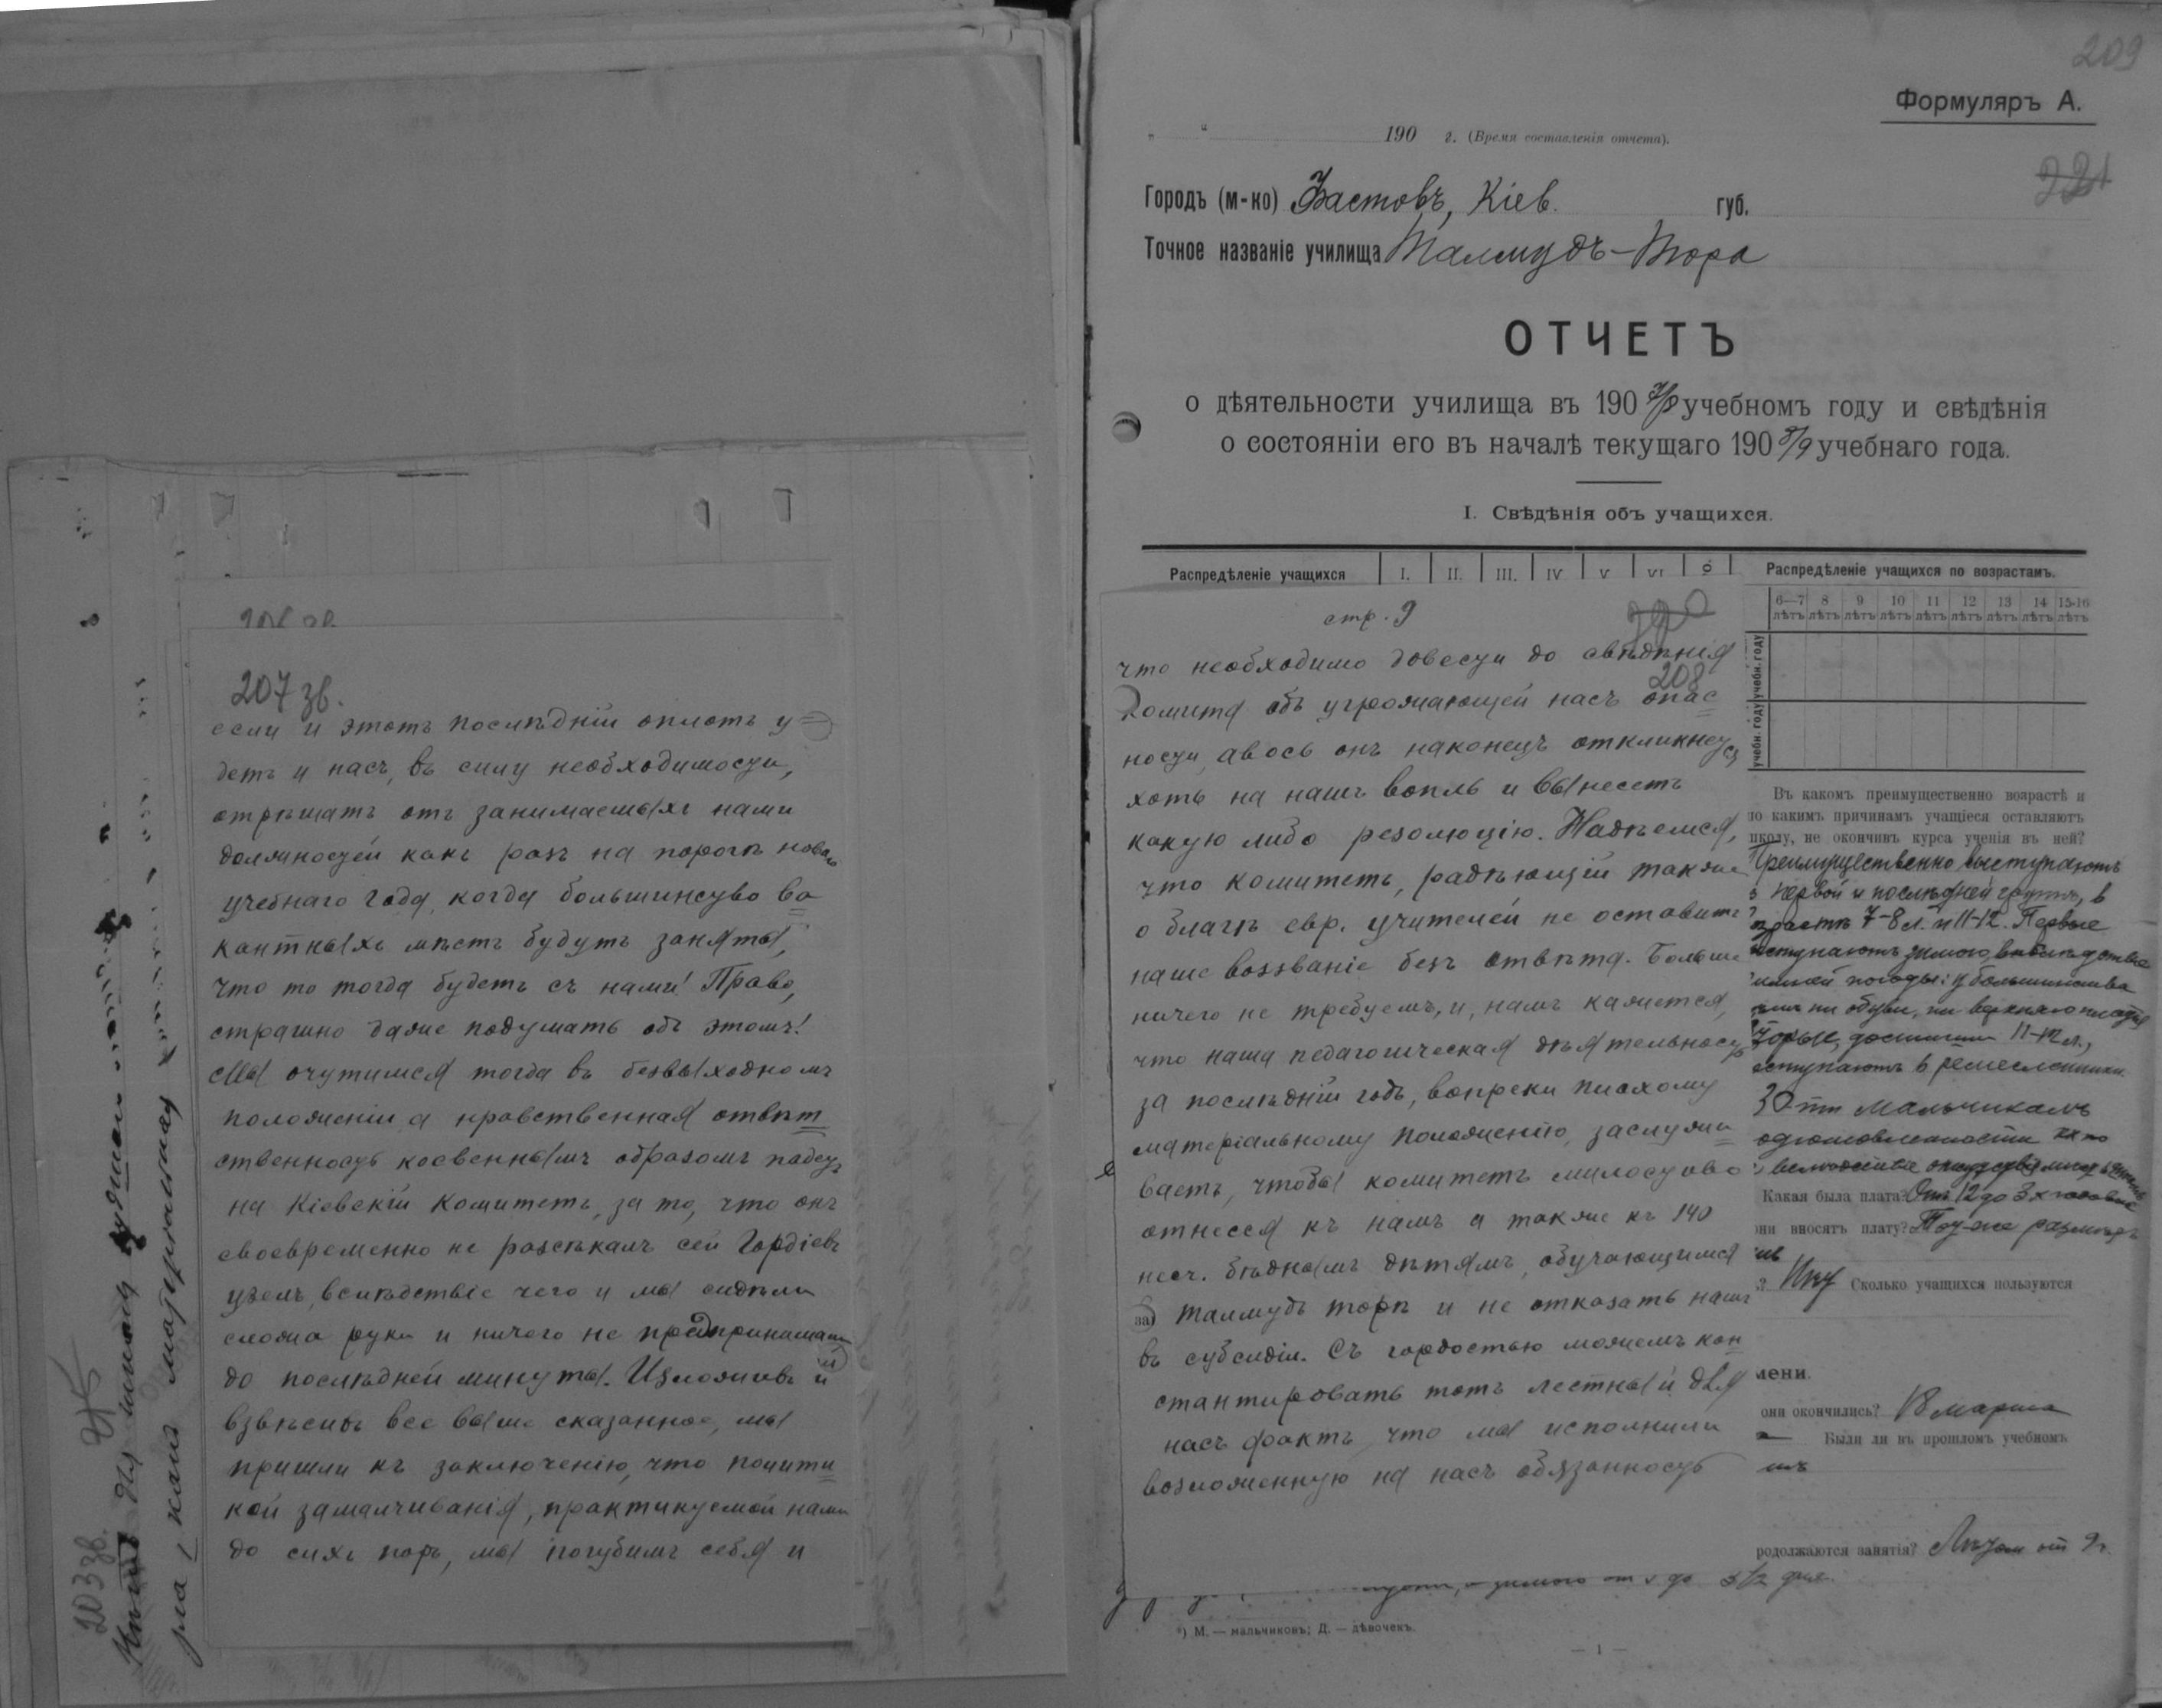 207 зв.
если и этотъ послѣднiй оплотъ у=
детъ и насъ, въ силу необходимости,
отрѣшатъ отъ занимаемыхъ нами
должностей какъ разъ на порогѣ новаго
учебнаго года, когда большинство ва=
кантныхъ мѣстъ будутъ заняты,
что то тогда будетъ съ нами! Право,
страшно даже подумать объ этомъ!
Мы очутимся тогда въ безвыходномъ
положенiи а нравственная отвѣт=
ственность косвеннымъ образомъ падетъ
на Кiевскiй Комитетъ, за то, что онъ
своевременно не разсѣкалъ сей Гордiевъ
узелъ, вслѣдствiе чего и мы сидѣли
сложа руки и ничего не предпринимали
до послѣдней минуты. Изложивъ и
взвѣсивъ все выше сказанное, мы
пришли къ заключенiю, что полити=
кой замалчиванiя, практикуемой нами
до сихъ поръ, мы погубимъ себя и
203 зв.
209
Формуляръ А.
190 г. (Время составленія отчета).
221
Городъ (м-ко) Фастовъ, Кіев. губ.
Точное названіе училища Талмудъ-Тора
ОТЧЕТЪ
о дѣятельности училища въ 1907/8 учебномъ году и свѣдѣнія
о состояніи его въ началѣ текущаго 1908/9 учебнаго года.
I. Свѣдѣнія объ учащихся.
Распредѣленіе учащихся I. II. III. IV V VI
Распредѣленіе учащихся по возрастамъ.
6—7 лѣтъ 8 лѣтъ 9 лѣтъ 10 лѣтъ 11 лѣтъ 12 лѣтъ 13 лѣтъ 14 лѣтъ 15-16 лѣтъ
учебн. году
учебн. году
стр. 9
220
208
что необходимо довести до свѣдѣнiя
Комитета объ угрожающей насъ опас=
ности, авось онъ наконецъ откликнется
хоть на нашъ вопль и вынесетъ
какую либо резолюцiю. Надѣемся,
что комитетъ, радѣющiй также
о благѣ евр. учителей не оставитъ
наше воззванiе безъ отвѣта. Больше
ничего не требуемъ, и, намъ кажется,
что наша педагогическая дѣятельность
за послѣднiй годъ, вопреки плохому
матерiальному положенiю, заслужи=
ваетъ, чтобы комитетъ милостиво
отнесся къ намъ а также къ 140
несч. бѣднымъ дѣтямъ, обучающимся
за) талмудъ торѣ и не отказать намъ
въ субсидiи. Съ гордостью можемъ кон=
стантировать тотъ лестный для
насъ фактъ, что мы исполнили
возложенную на насъ обязанность
Въ какомъ преимущественно возрастѣ и
по какимъ причинамъ учащіеся оставляютъ
школу, не окончивъ курса ученія въ ней?
Преимущественно выступаютъ
первой и послѣдней группъ, в
7-8 л. и 11-12. Первые
зимою, вслѣдствіе
погоды: у большинства
ни обуви, ни верхняго платья
достигши 11-12 л.,
в ремесленники.
30-ти мальчикамъ
Какая была плата? Отъ 12 до 3 х
они вносятъ плату?
Сколько учащихся пользуются
мени.
они окончились? 18 марта
Были ли въ прошломъ учебномъ
родолжаются занятія? Лѣтом от 9 ч.
*) М. — мальчиковъ; Д. — дѣвочекъ.
— 1 —